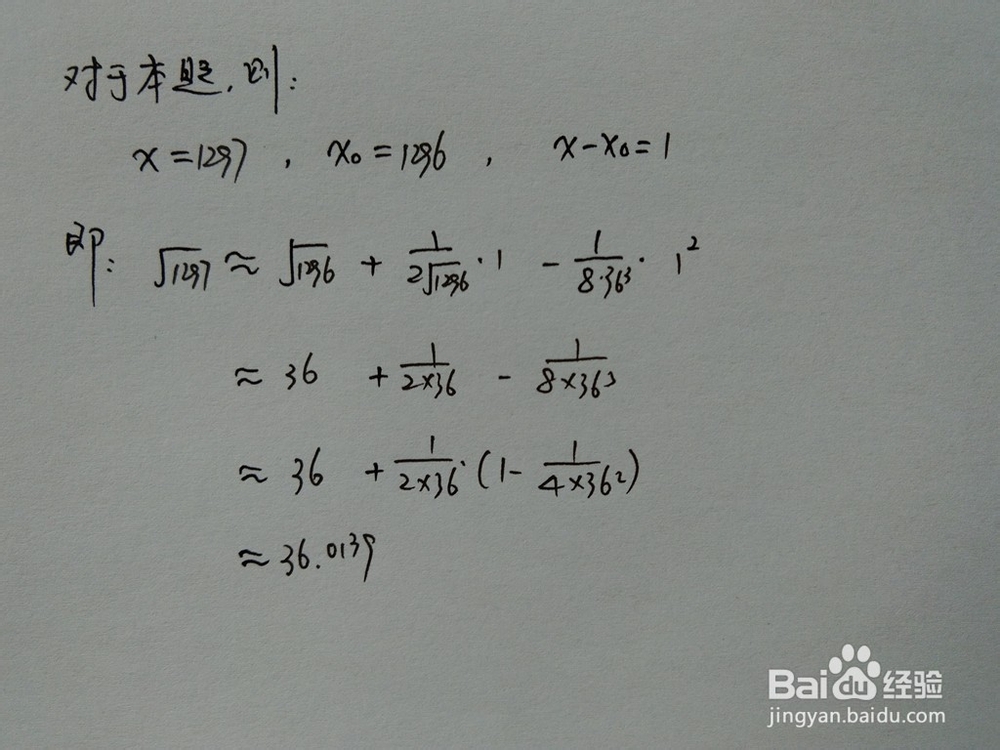 对于本题,则:
x=1297 , x₀=1296 , x-x₀=1
即: √1297 ≈ √1296 + 1/(2√1296)·1 - 1/(8·36³)·1²
≈ 36 + 1/(2×36) - 1/(8×36³)
≈ 36 + 1/(2×36)·(1- 1/(4×36²))
≈ 36.0139
Baidu经验
jingyan.baidu.com